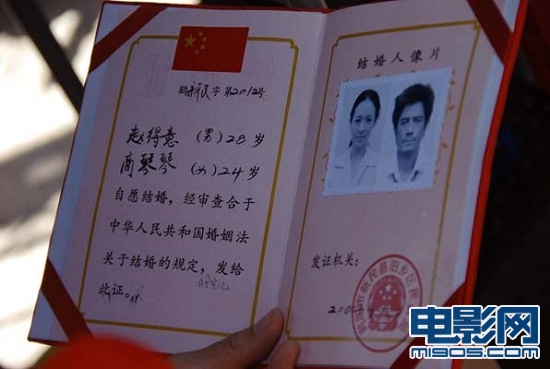 字第2012号
赵得意 (男)28岁
商琴琴 (女)24岁
自愿结婚,经审查合于
中华人民共和国婚姻法
关于结婚的规定,发给
此证。
结婚人像片
发证机关:
电影网
m1905.com